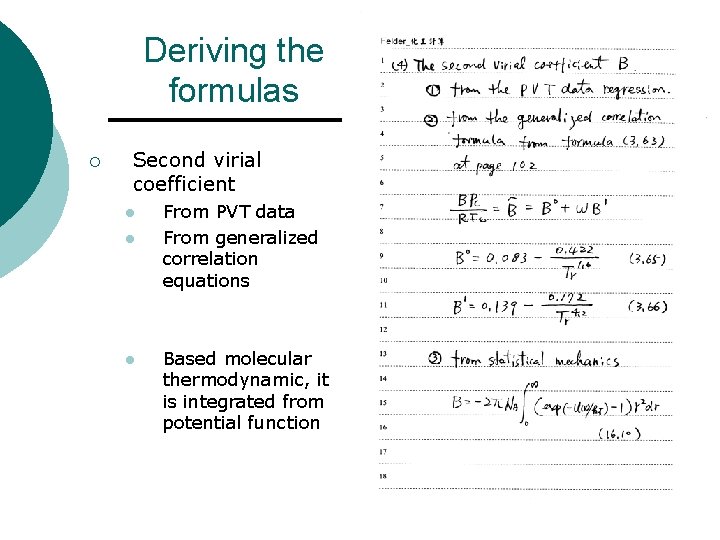 Deriving the
formulas
Second virial
coefficient
From PVT data
From generalized
correlation
equations
Based molecular
thermodynamic, it
is integrated from
potential function
Helder_化工計算
1 (4) The second virial coefficient B
2 ① from the PVT data regression.
3 ② from the generalized correlation
4 formula from formula (3,63)
5 at page 102
6
7 BPc/RTc = B̂ = B° + ωB'
8
9 B° = 0.083 - 0.422/Tr^1.6 (3.65)
10
11 B' = 0.139 - 0.172/Tr^4.2 (3.66)
12
13 ③ from statistical mechanics
14
15 B = -2πNA ∫0^∞ (exp(-U(r)/kT)-1) r²dr
16 (16.10)
17
18